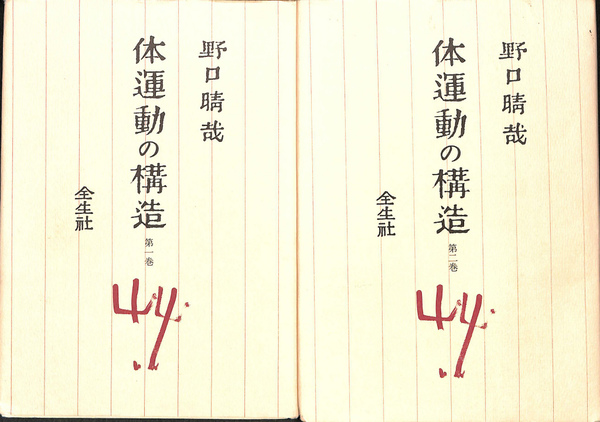 野口晴哉
体運動の構造
第一巻
全生社
野口晴哉
体運動の構造
第二巻
全生社